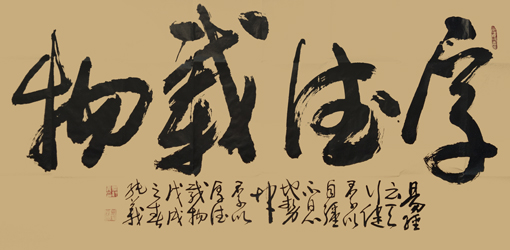 厚德載物
易經
云天
行健
君子以
自彊
不息
地勢
坤
君子以
厚德
載物
戊戌
之春